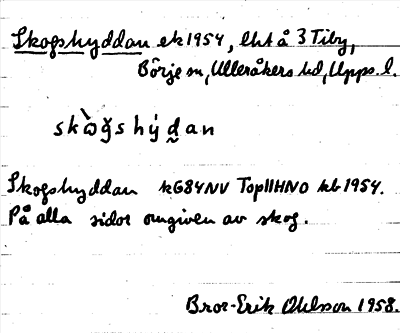 Skogshyddan ek 1954, lht å 3 Tiby,
Börje sn, Ulleråkers hd, Upps. l.
skὼǧs hý d̰an
Skogshyddan kG84NV Top11HNO kb 1954.
På alla sidor omgiven av skog.
Bror-Erik Ohlsson 1958.